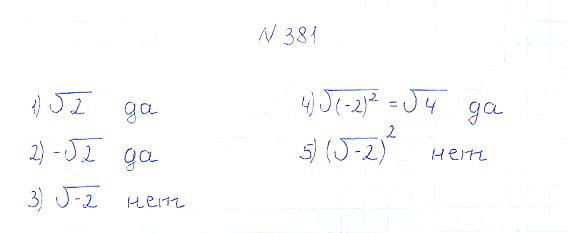 N 381
1) √2 да
2) -√2 да
3) √-2 нет
4) √(-2)² = √4 да
5) (√-2)² нет